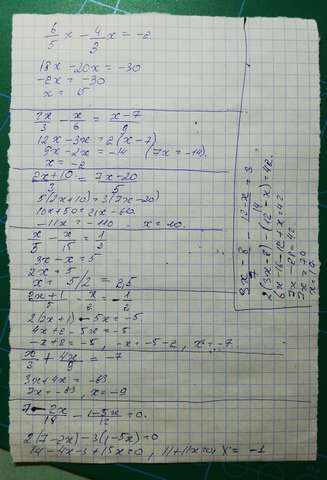 6/5 x - 4/3 x = -2
18x - 20x = -30
-2x = -30
x = 15
2x/3 - x/6 = x-7/9
12x - 3x = 2(x-7)
9x - 2x = -14 (7x = -14)
x = -2
2x+10/3 = 7x-20/5
5(2x+10) = 3(7x-20)
10x+50 = 21x-60
-11x = -110 x = 10.
x/5 - x/15 = 1/3
3x - x = 5
2x = 5
x = 5/2 = 2,5
2x+1/5 - x/2 = -1/2
2(2x+1) - 5x = -5
4x+2 - 5x = -5
-x+2 = -5, -x = -5-2, x = -7
x/3 + 4x/9 = -7
3x+4x = -63
7x = -63, x = -9
7-2x/18 - 1-5x/12 = 0.
2(7-2x) - 3(1-5x) = 0
14-4x-3+15x = 0, 11+11x=0, x = -1
3x-8/7 - 12-x/14 = 3
2(3x-8) - (12-x) = 42.
7x = 70
x = 10.